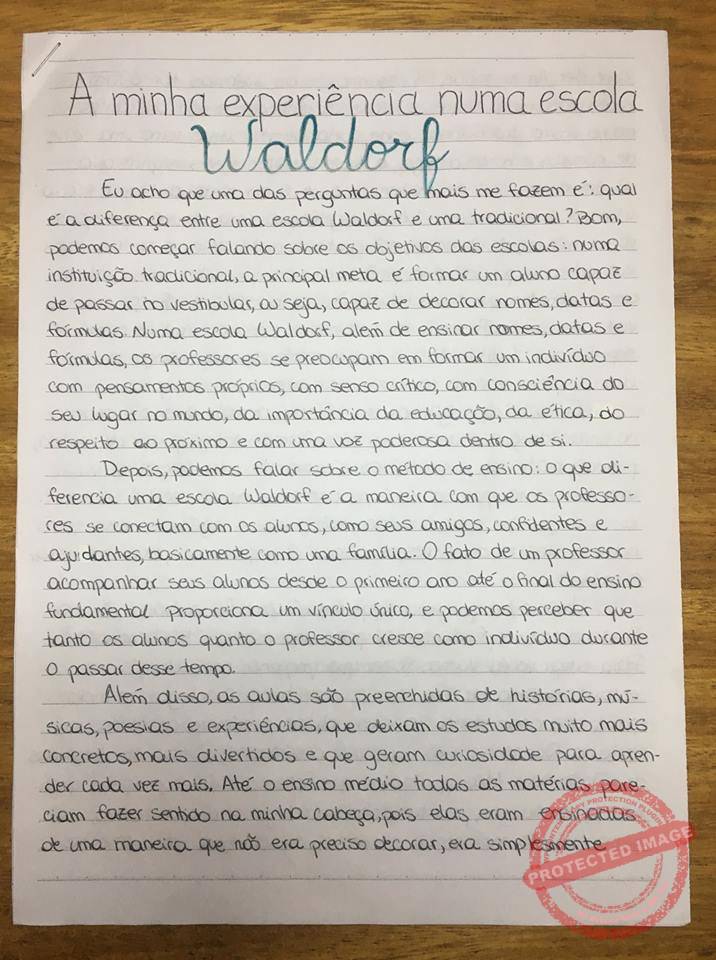 A minha experiência numa escola
Waldorf
Eu acho que uma das perguntas que mais me fazem é: qual
é a diferença entre uma escola Waldorf e uma tradicional? Bom,
podemos começar falando sobre os objetivos das escolas: numa
instituição tradicional, a principal meta é formar um aluno capaz
de passar no vestibular, ou seja, capaz de decorar nomes, datas e
fórmulas. Numa escola Waldorf, além de ensinar nomes, datas e
fórmulas, os professores se preocupam em formar um indivíduo
com pensamentos próprios, com senso crítico, com consciência do
seu lugar no mundo, da importância da educação, da ética, do
respeito ao próximo e com uma voz poderosa dentro de si.
Depois, podemos falar sobre o método de ensino: o que di-
ferencia uma escola Waldorf é a maneira com que os professo-
res se conectam com os alunos, como seus amigos, confidentes e
ajudantes, basicamente como uma família. O fato de um professor
acompanhar seus alunos desde o primeiro ano até o final do ensino
fundamental proporciona um vínculo único, e podemos perceber que
tanto os alunos quanto o professor cresce como indivíduo durante
o passar desse tempo.
Além disso, as aulas são preenchidas de histórias, mú-
sicas, poesias e experiências, que deixam os estudos muito mais
concretos, mais divertidos e que geram curiosidade para apren-
der cada vez mais. Até o ensino médio todas as matérias pare-
ciam fazer sentido na minha cabeça, pois elas eram ensinadas
de uma maneira que não era preciso decorar, era simplesmente
PROTECTED IMAGE